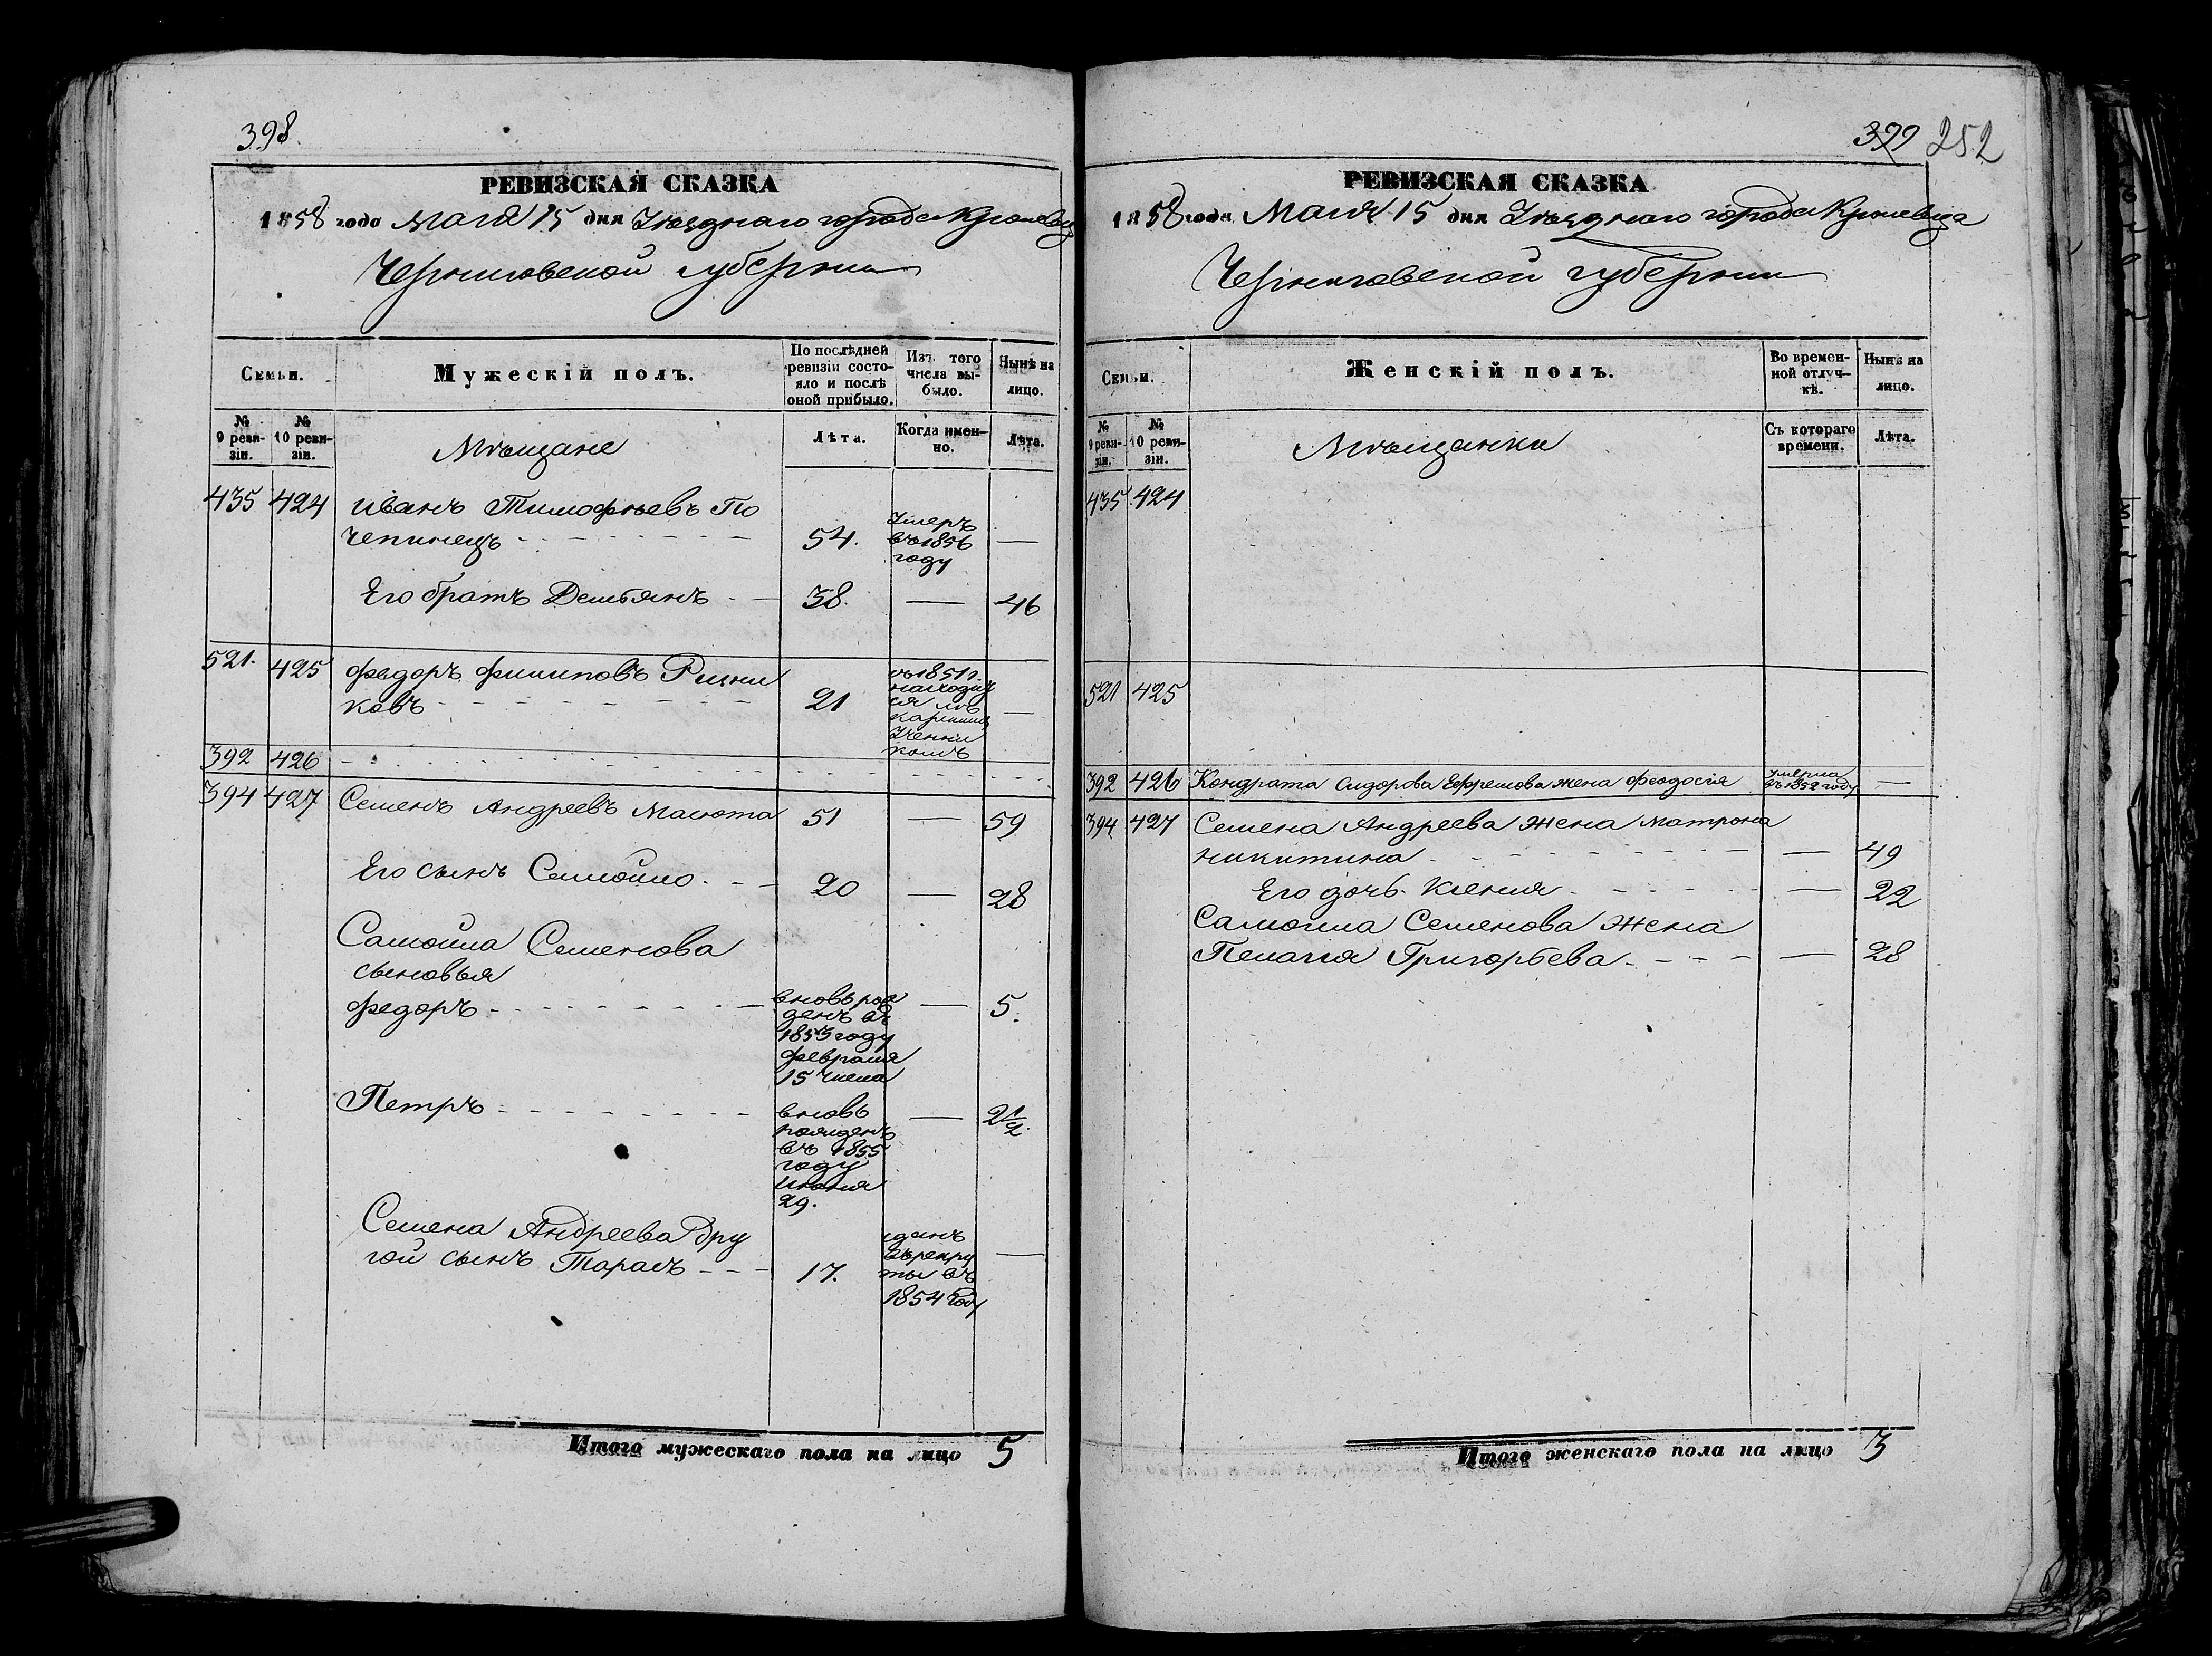 398.
РЕВИЗСКАЯ СКАЗКА
1858 года Мая 15 дня Уѣзднаго города Кролевца
Черниговской губернии
Семьи.
Мужескій полъ.
По послѣдней ревизіи состояло и послѣ оной прибыло.
Изъ того числа выбыло.
Нынѣ на лицо.
№ 9 ревизіи.
№ 10 ревизіи.
Мѣщане
Лѣта.
Когда именно.
Лѣта.
435 424 Иванъ Тимофѣевъ По
чепинецъ 54. Умеръ въ 1856 году —
Его братъ Демьянъ — 38. — 46
521. 425 Федоръ Филиповъ
ковъ 21 въ 1851 г. —
392 426
394 427 Семенъ Андреевъ Малюта 51 — 59
Его сынъ Самойло 20 — 28
Самойла Семенова
сыновья
Федоръ вновь рож
денъ въ
1853 году
февраля
15 числа — 5.
Петръ вновь
рожденъ
въ 1855
году
июня
29. — 2 1/2.
Семена Андреева дру
гой сынъ Тарасъ 17. сданъ
въ рекру
ты въ
1854 году —
Итого мужескаго пола на лицо 5
399 252
РЕВИЗСКАЯ СКАЗКА
1858 года Мая 15 дня Уѣзднаго города Кролевца
Черниговской губернии
Семьи.
Женскій полъ.
Во временной отлучкѣ.
Нынѣ на лицо.
№ 9 ревизіи.
№ 10 ревизіи.
Мѣщанки
Съ котораго времени.
Лѣта.
435 424
521 425
392 426 Кондрата Сидорова Ефремова жена Феодосія умерла въ 1852 году —
394 427 Семена Андреева жена Матрона
Никитина — 49
Его дочь Ксения — 22
Самойла Семенова жена
Пелагия Григорьева — 28
Итого женскаго пола на лицо 3